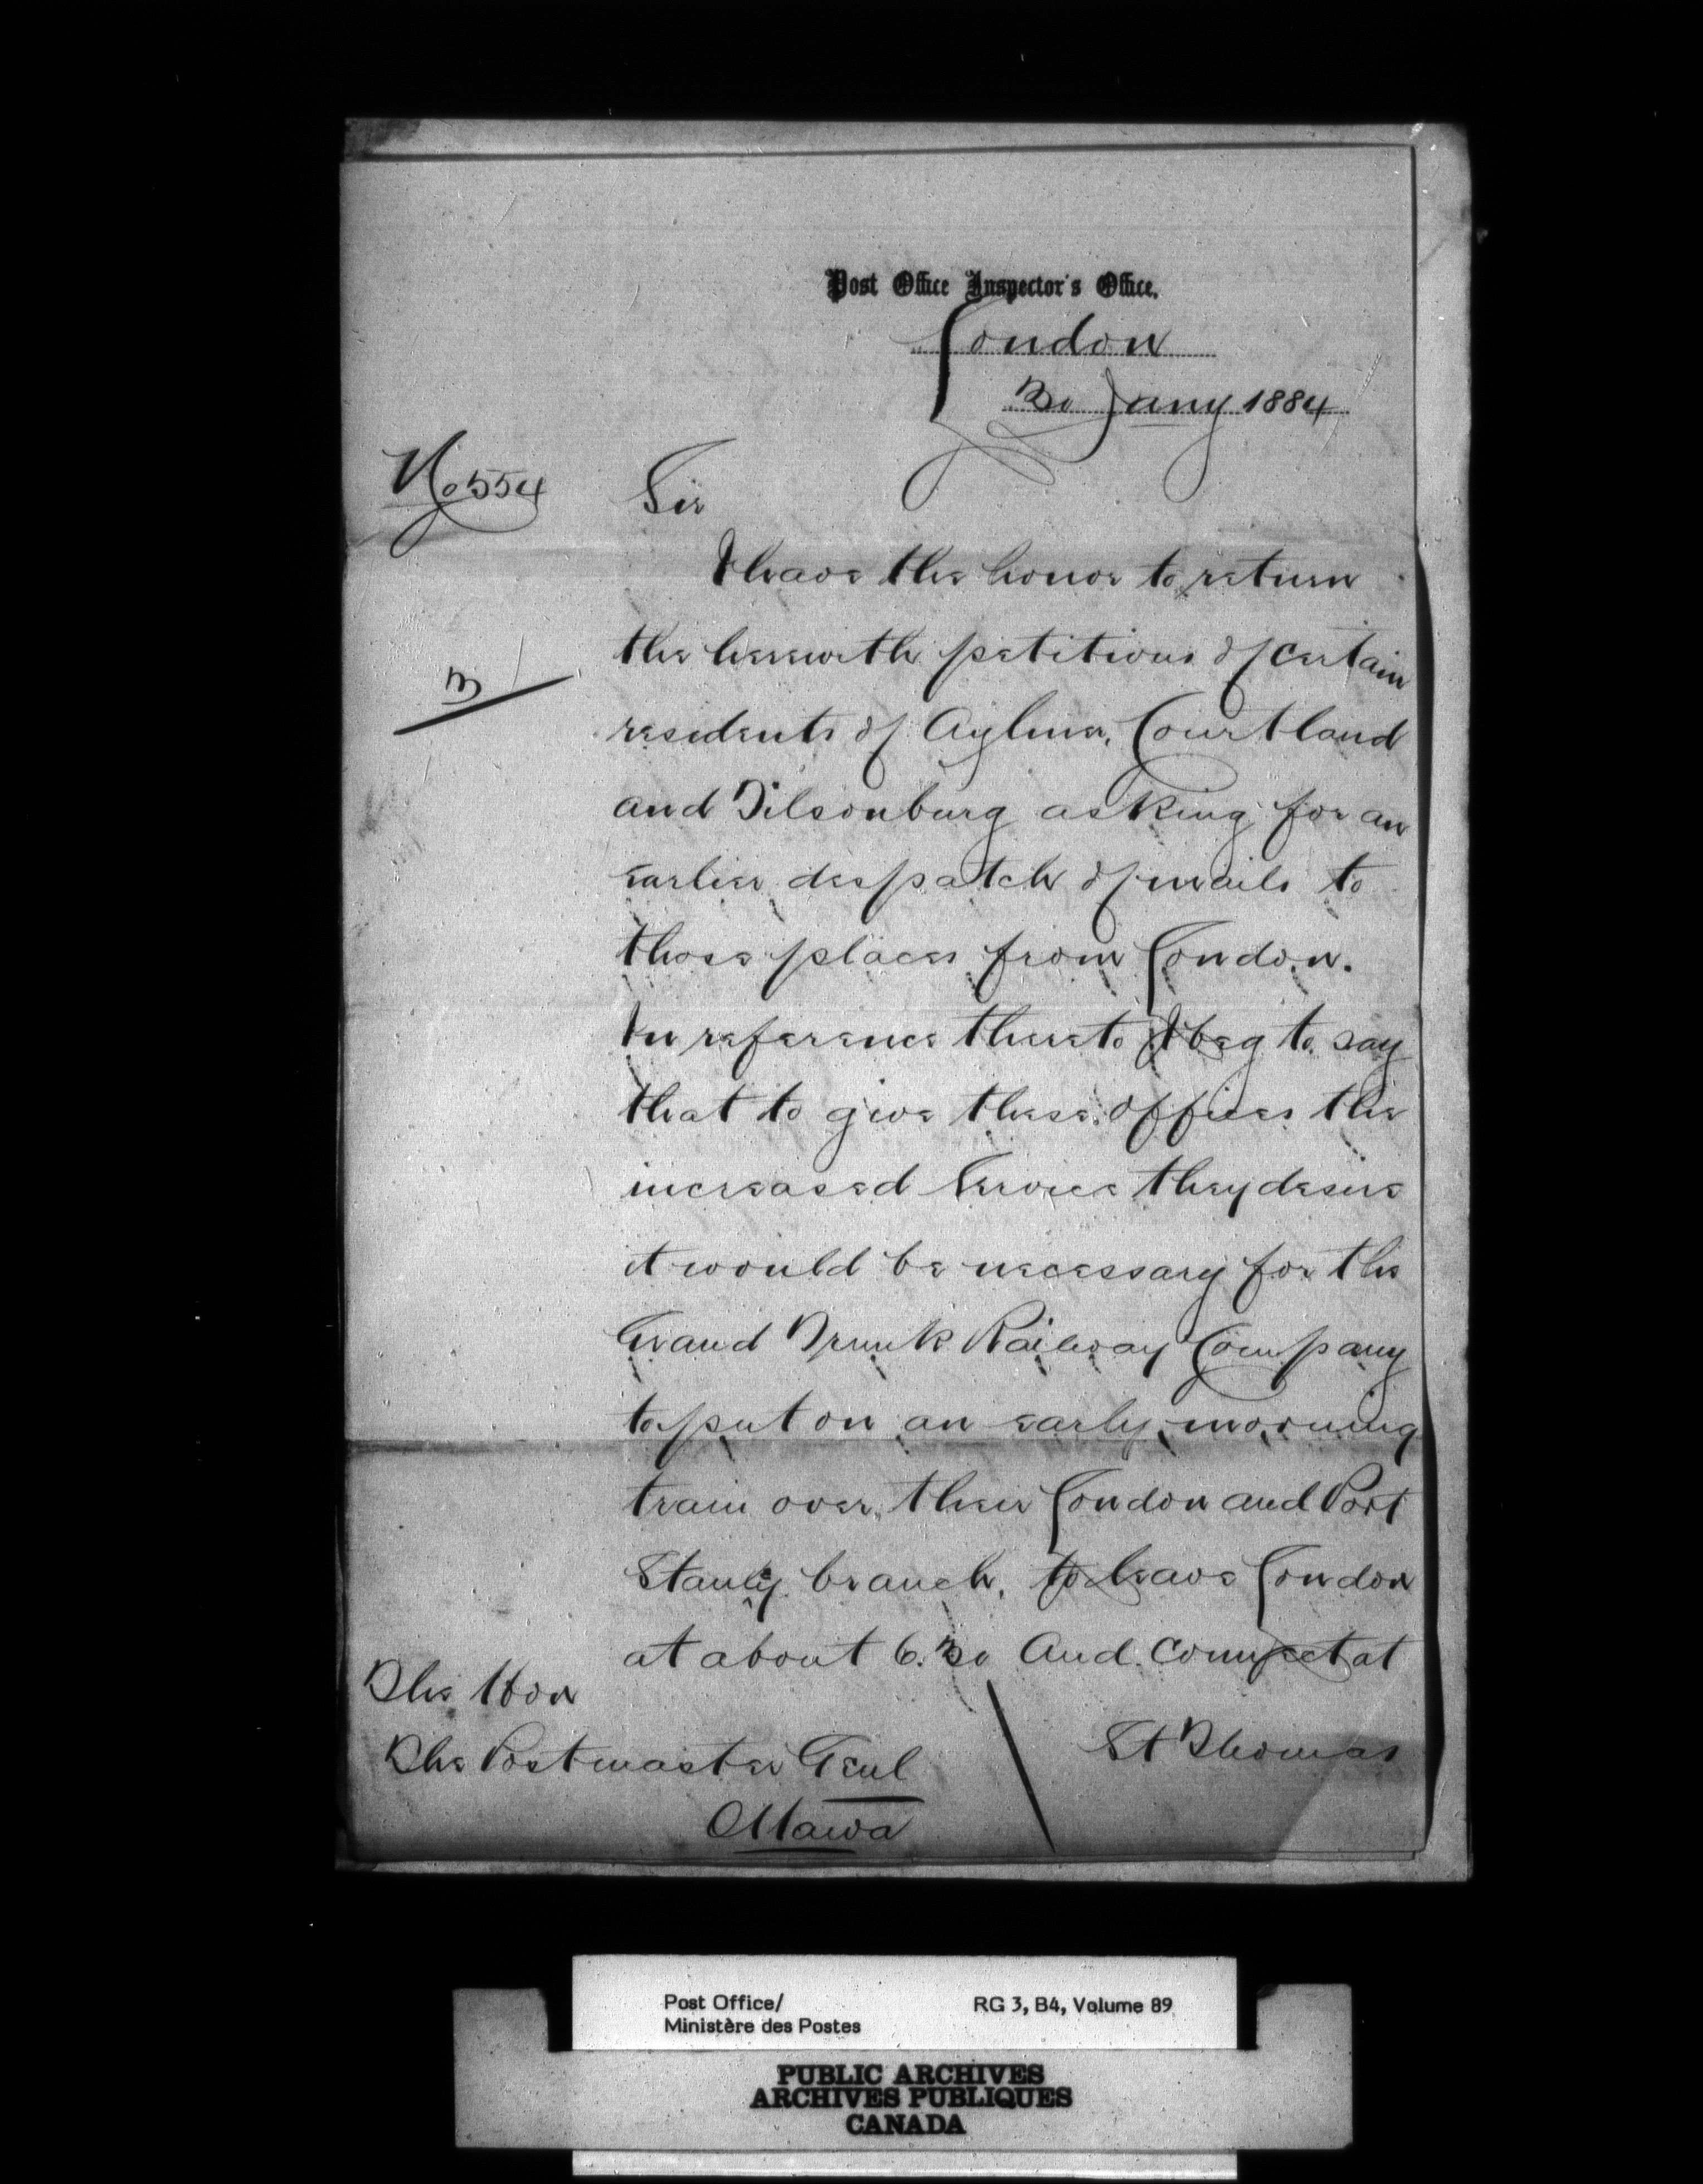 Post Office Inspector's Office,
London
30 Jany 1884
No 554
Sir
I have the honor to return
the herewith petitions of certain
residents of Aylmer, Courtland
and Tilsonburg asking for an
earlier despatch of mails to
those places from London.
In reference thereto I beg to say
that to give these offices the
increased Service they desire
it would be necessary for the
Grand Trunk Railway Company
to put on an early morning
train over their London and Port
Stanley branch, to leave London
at about 6.30 and connect at
St Thomas
The Hon
The Postmaster Genl
Ottawa
Post Office/
Ministère des Postes
RG 3, B4, Volume 89
PUBLIC ARCHIVES
ARCHIVES PUBLIQUES
CANADA